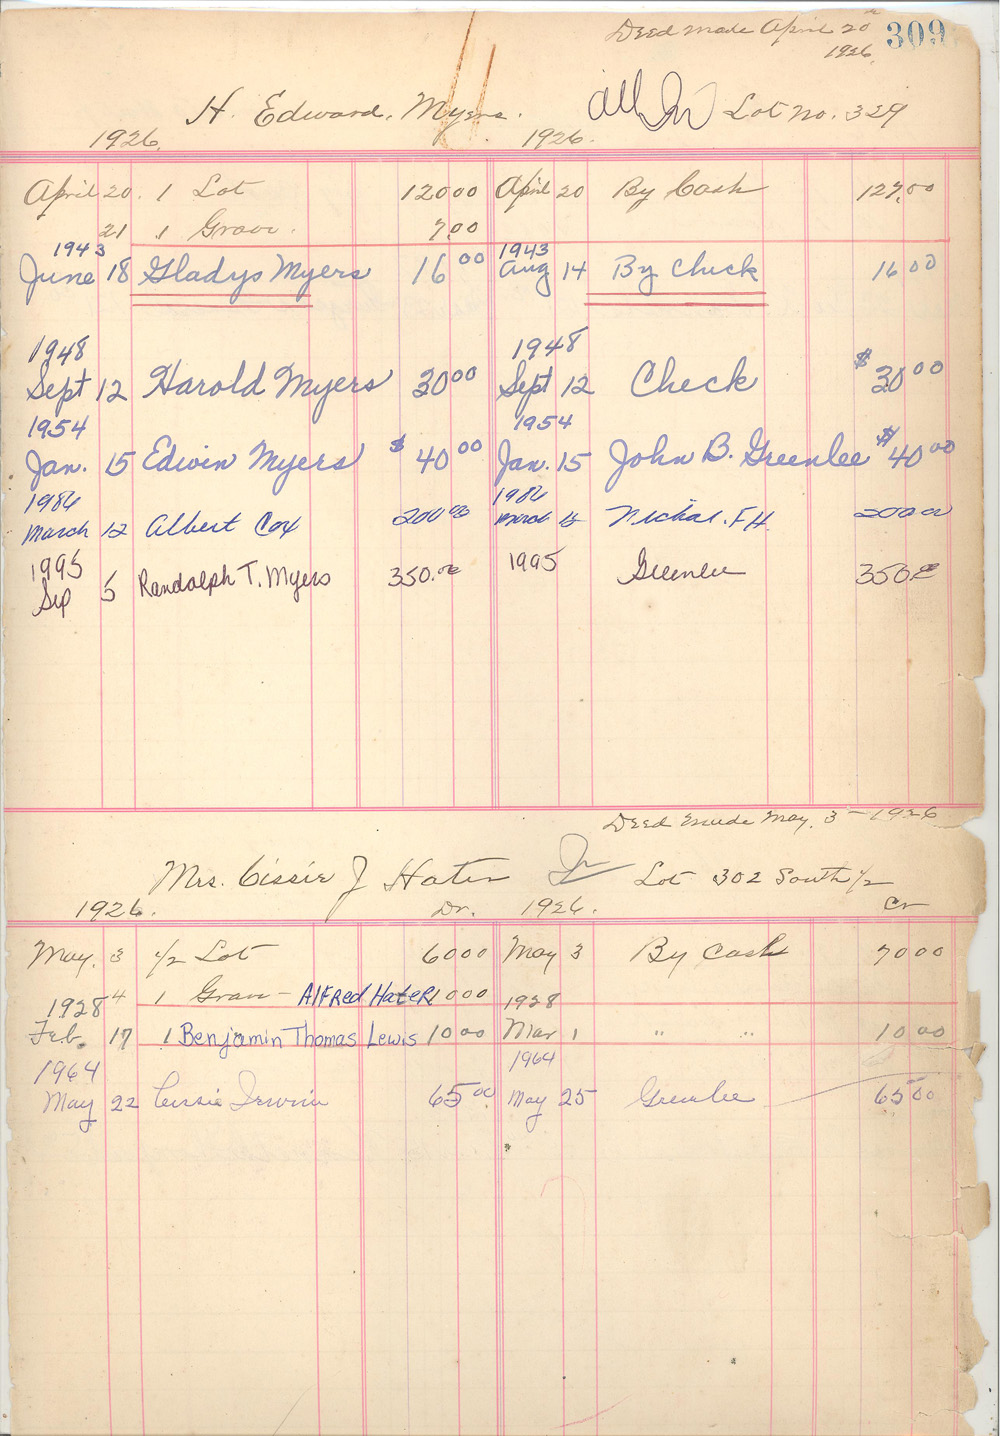 Deed made April 20th 309
1926
H. Edward. Myers. all In Lot No. 329
1926. 1926.
April 20. 1 Lot 120 00 April 20 By Cash 127.00
21 1 Grave. 7.00
1943 1943
June 18 Gladys Myers 16 00 Aug 14 By Check 16 00
1948 1948
Sept 12 Harold Myers 30 00 Sept 12 Check $ 30 00
1954 1954
Jan. 15 Edwin Myers $ 40 00 Jan. 15 John B. Greenlee $ 40 00
1986 1986
March 12 Albert Cox 200 00 March Nichal. F H. 200 00
1995 1995 Greenlee 350.00
Sep 5 Randolph T. Myers 350.00
Deed made May. 3 - 1926
Mrs. Cissie J Hater In Lot 302 South 1/2
1926. Dr. 1926. Cr
May. 3 1/2 Lot 60 00 May 3 By Cash 70 00
4 1 Grave - Alfred Hater 10 00
1928 1928
Feb. 17 1 Benjamin Thomas Lewis 10 00 Mar 1 " " 10 00
1964 1964
May 22 Cissie Irwin 65 00 May 25 Greenlee 65 00